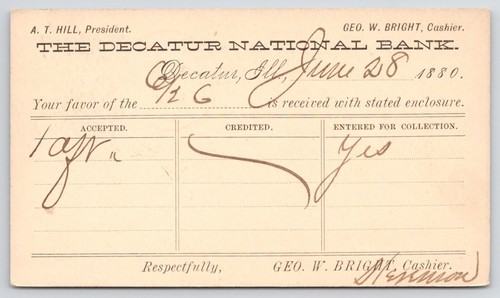 A. T. HILL, President. GEO. W. BRIGHT, Cashier.
THE DECATUR NATIONAL BANK.
Decatur, Ill, June 28 1880.
Your favor of the 26 is received with stated enclosure.
ACCEPTED. CREDITED. ENTERED FOR COLLECTION.
1 Yes
Respectfully, GEO. W. BRIGHT, Cashier.